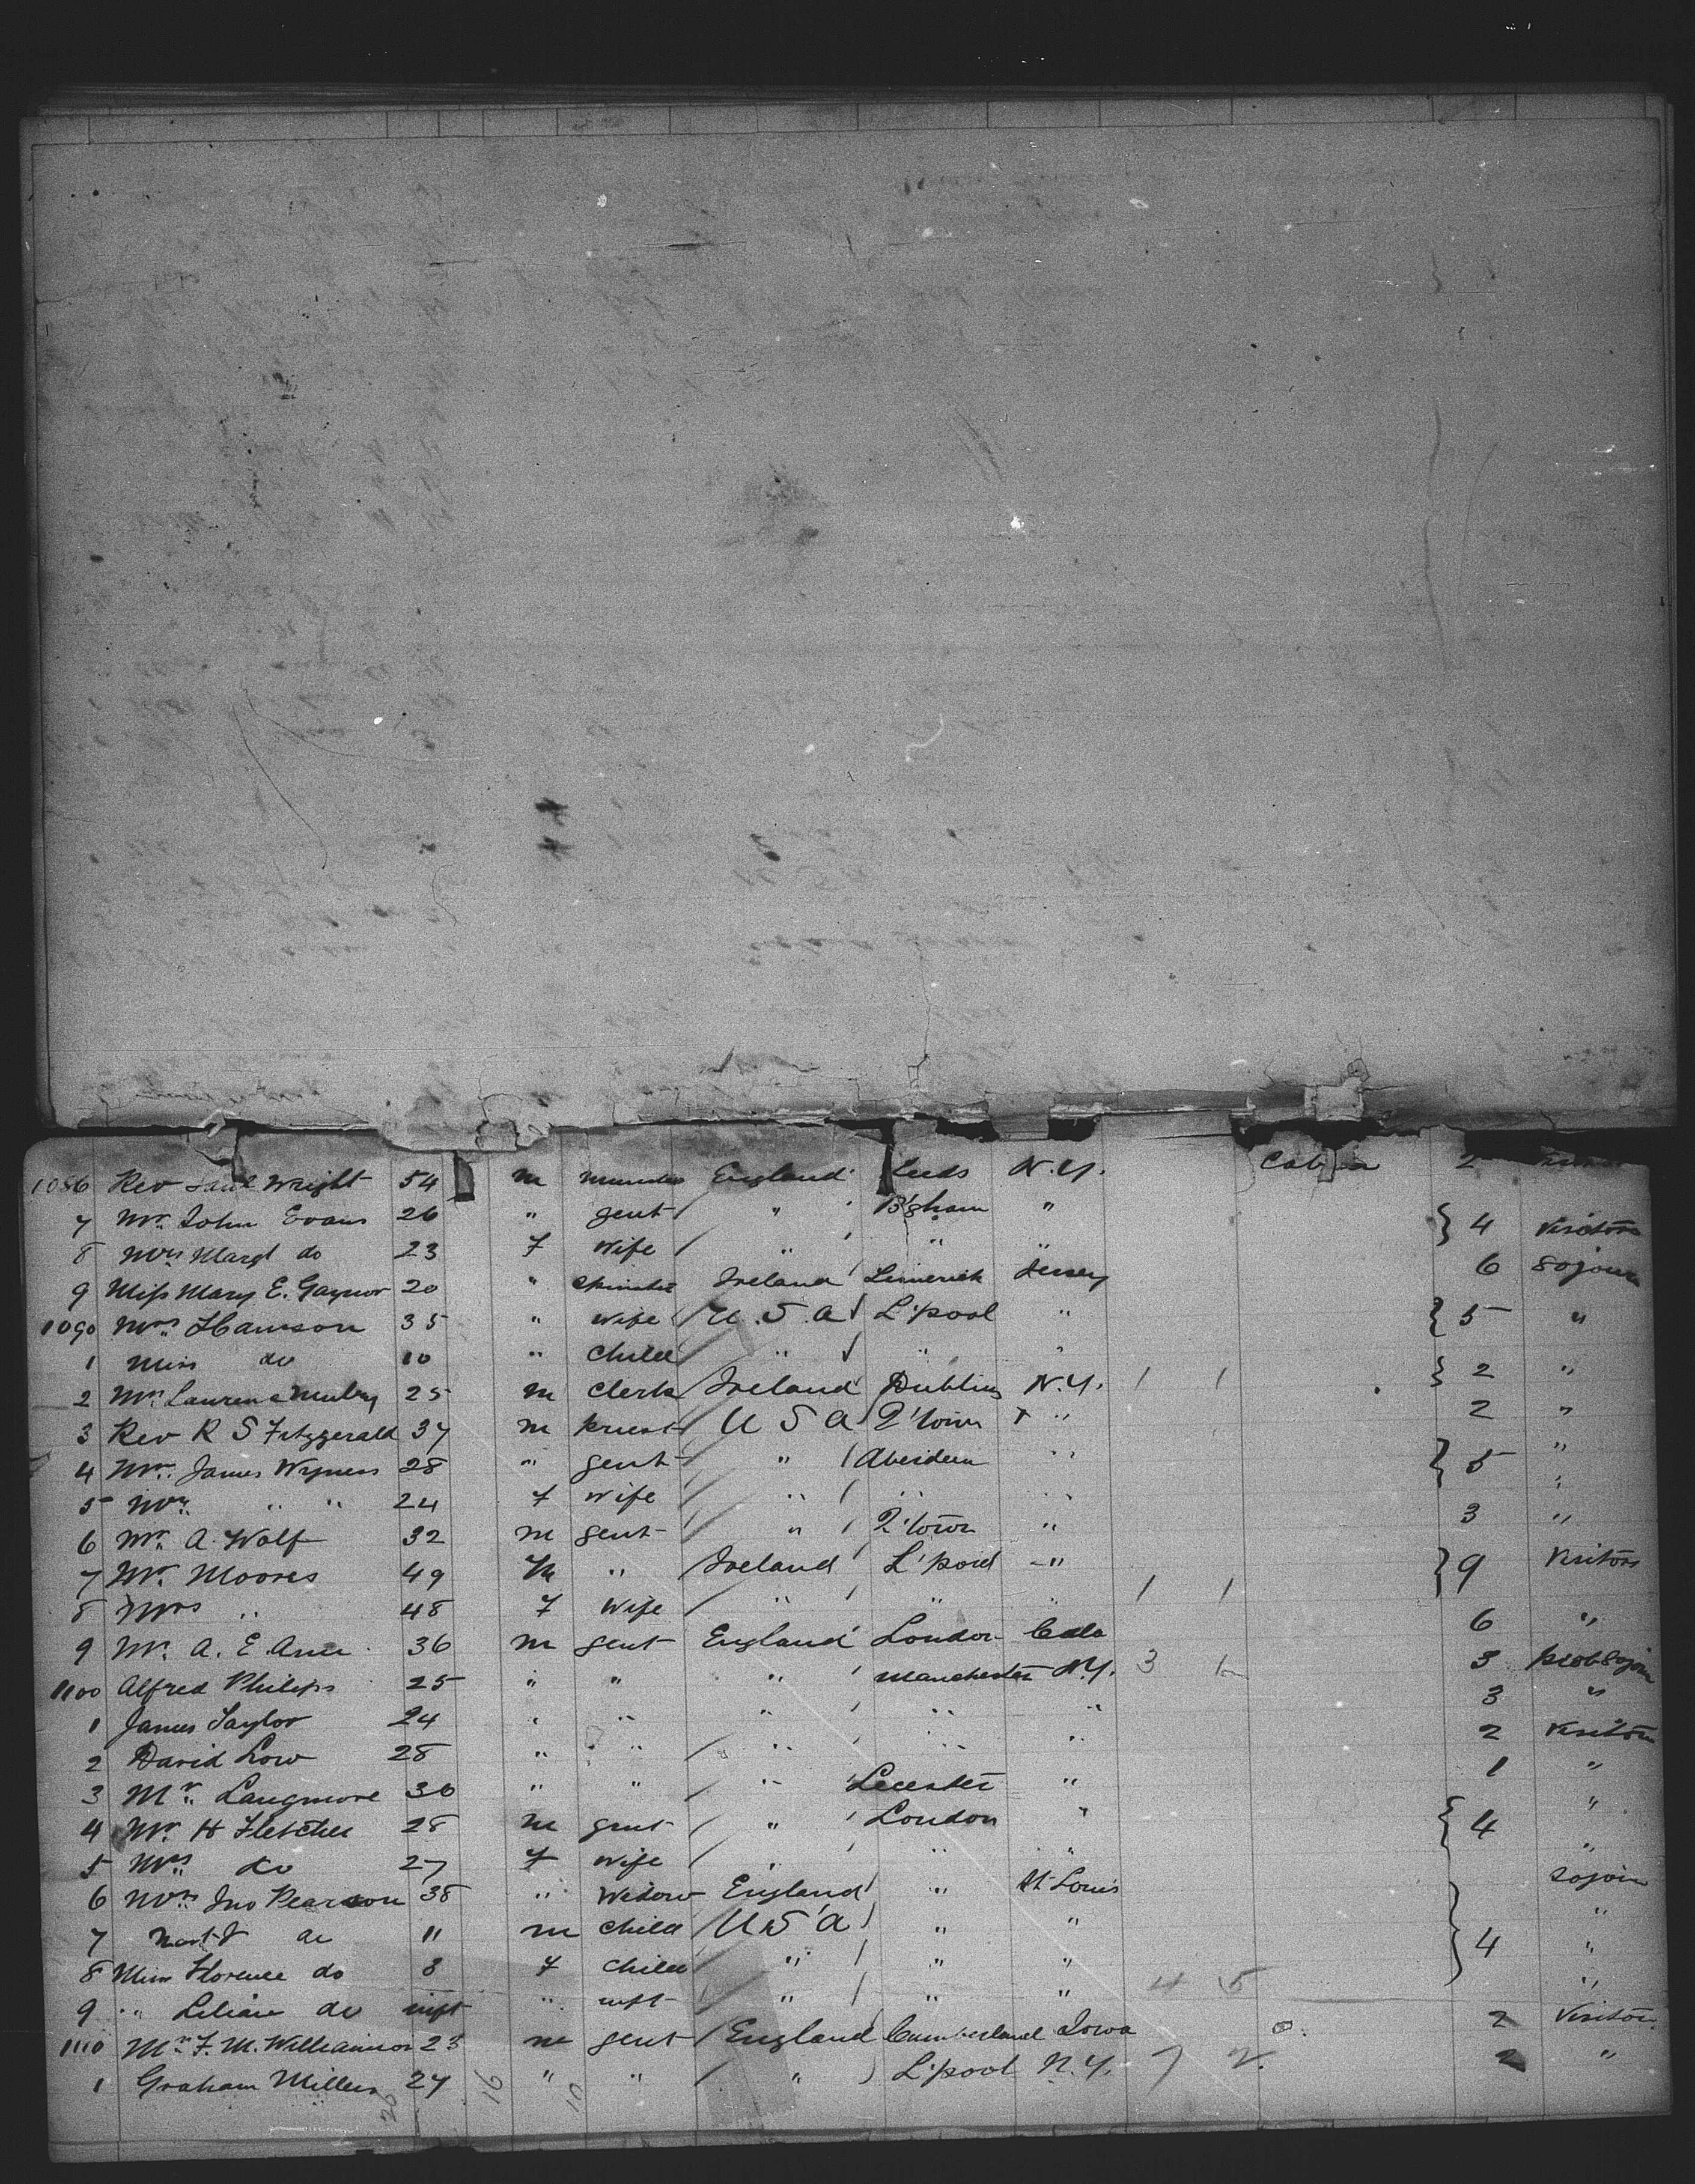 1086 Rev Wright 54 m England Leeds N.Y. Cabin 2
7 Mr. John Evans 26 " gent " B'gham " } 4 Visitors
8 Mrs Margt do 23 f Wife " " "
9 Miss Mary E. Gaynor 20 " Spinster Ireland Limerick Jersey 6 Sojourn
1090 Mrs. 35 " Wife U.S.A L'pool " { 5 "
1 Miss do 10 " Child " " "
2 Mr. 25 m Clerk Ireland Dublin N.Y. 1 1 { 2 "
3 Rev R S Fitzgerald 37 m Priest U S A Q'town " 2 "
4 Mr. James Wyness 28 " gent " Aberdeen " } 5 "
5 Mrs. " " 24 f Wife " " " "
6 Mr. A. Wolf 32 m gent " Q'town " 3 "
7 Mr. Moores 49 M " Ireland L'pool " } 9 Visitors
8 Mrs " 48 f Wife " " " 1 1
9 Mr. A. E. 36 m gent England London 6 "
1100 Alfred Philips 25 " " " Manchester N.Y. 3 3
1 James Taylor 24 " " " " " 3 "
2 David Low 28 " " " " " 2 Visitors
3 Mr. Langmore 30 " " " Leicester " 1 "
4 Mr. H Fletcher 28 m gent " London " { 4 "
5 Mrs. do 27 f Wife " " " "
6 Mrs. Jno Pearson 38 " Widow England " St. Louis Sojourn
7 do 11 m Child U S A " " } 4 "
8 Miss Florence do 8 f Child " " " "
9 " Lilian do inft " inft " " " 4 5 "
1110 Mr. F. M. Williamson 23 m gent England Cumberland Iowa 2 Visitors
1 Graham 27 " " " L'pool N.Y. 7 2 2 "
26 16 10